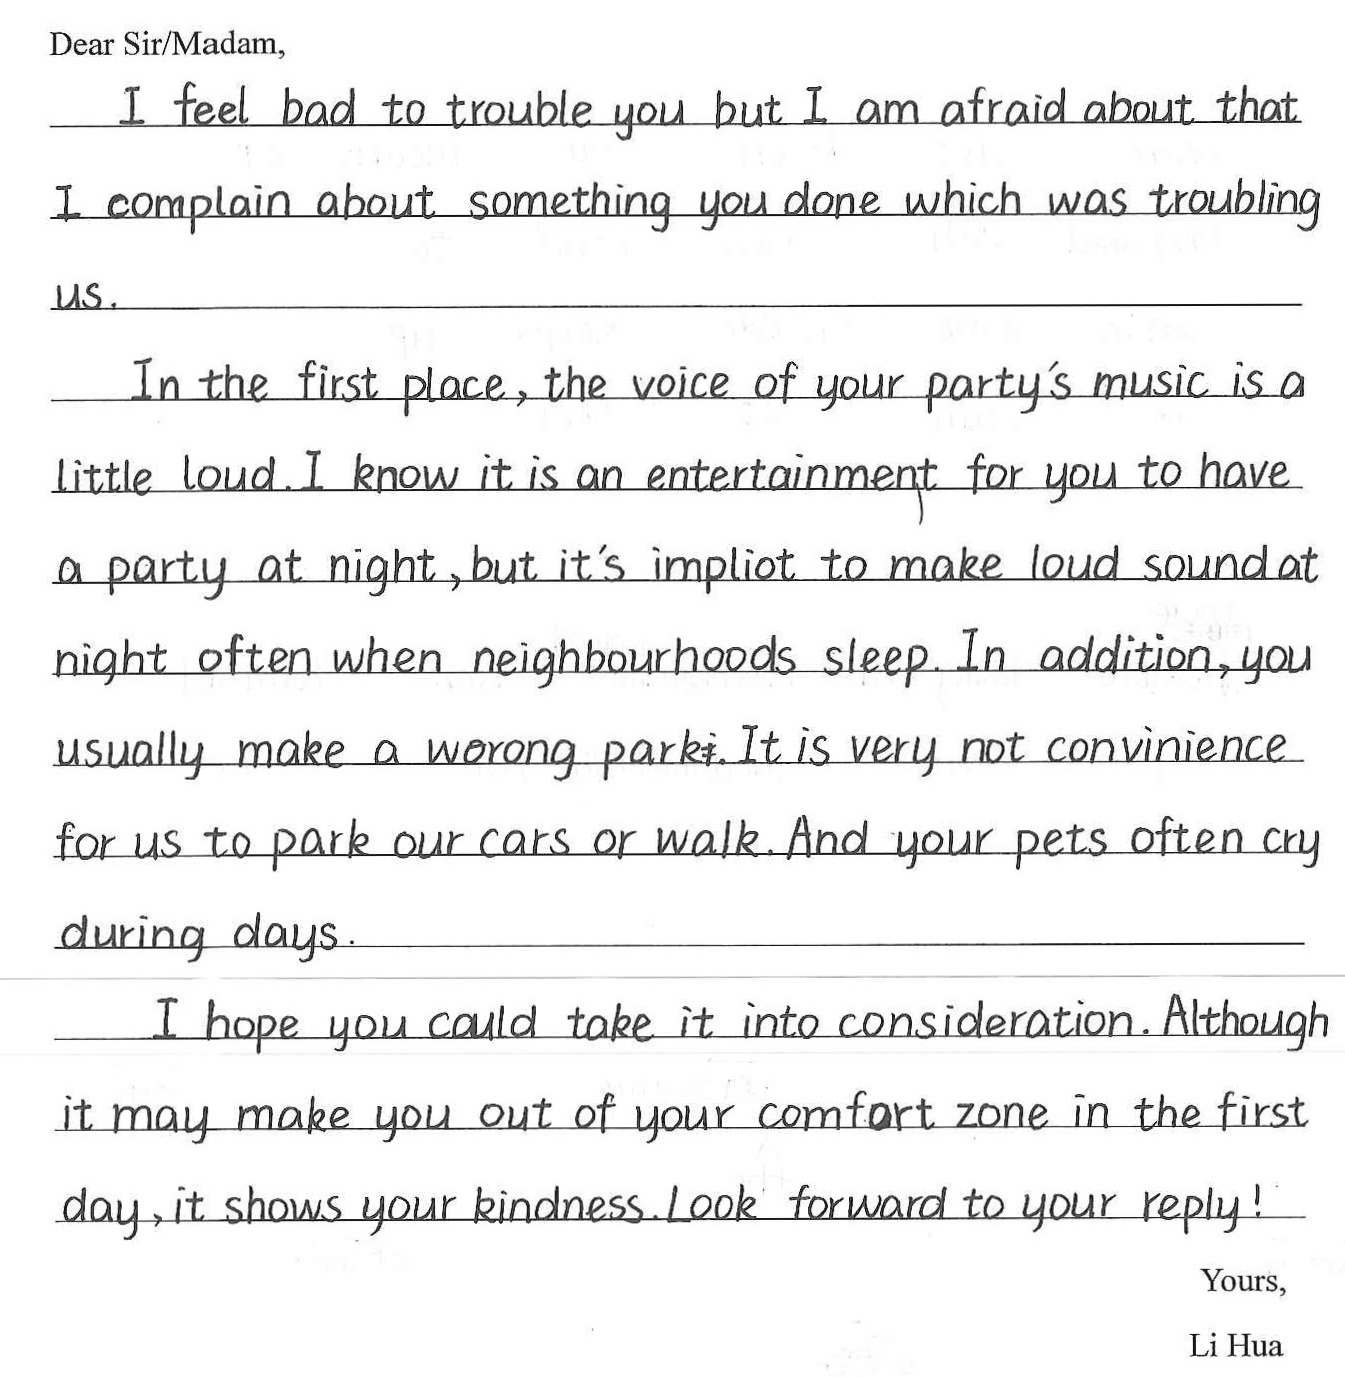 Dear Sir/Madam,
I feel bad to trouble you but I am afraid about that
I complain about something you done which was troubling
us.
In the first place, the voice of your party's music is a
little loud. I know it is an entertainment for you to have
a party at night, but it's impliot to make loud sound at
night often when neighbourhoods sleep. In addition, you
usually make a worong park. It is very not convinience
for us to park our cars or walk. And your pets often cry
during days.
I hope you could take it into consideration. Although
it may make you out of your comfort zone in the first
day, it shows your kindness. Look forward to your reply!
Yours,
Li Hua